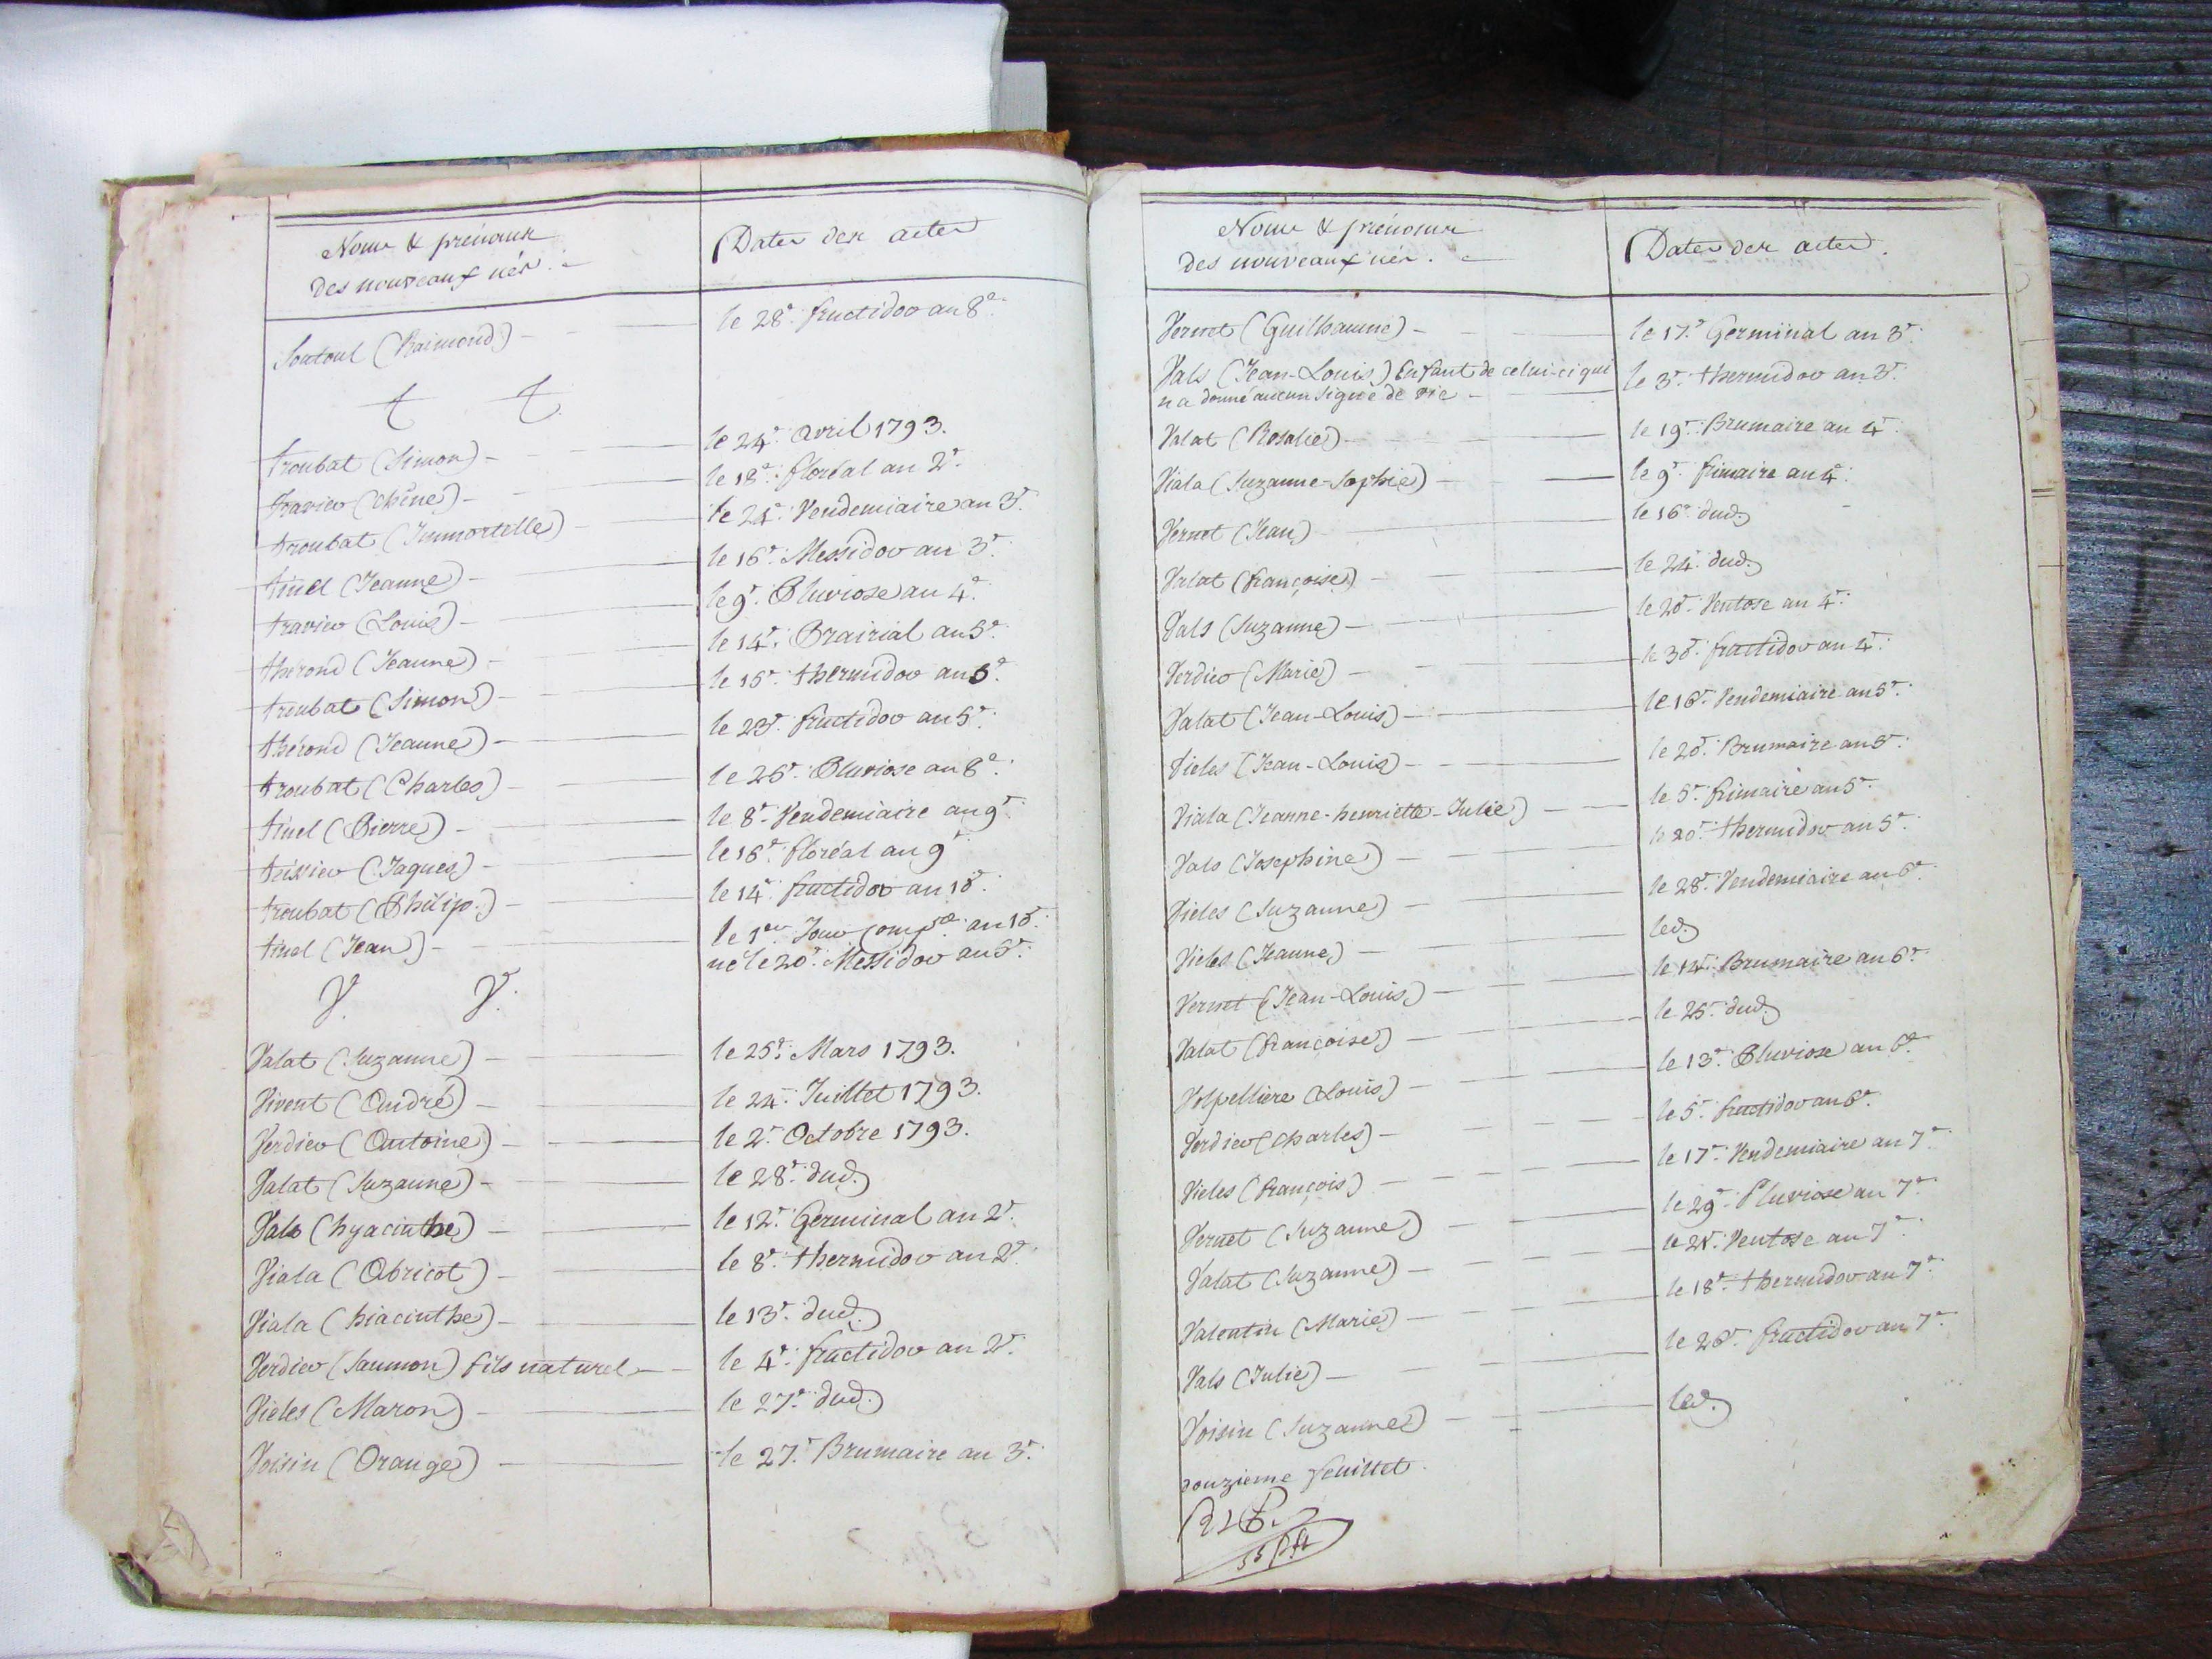 Noms & prénoms
des nouveaux nés.
Dates des actes
Soutoul (Raimond) - le 28e. fructidor an 8e.
t t
troubat (Simon) - le 24e. avril 1793.
travier (chêne) - le 18e. floréal an 2e.
troubat (Immortelle) - le 24e. Vendemiaire an 3e.
tinel (Jeanne) - le 16e. Messidor an 3e.
travier (Louis) - le 9e. Pluviose an 4e.
thérond (Jeanne) - le 14e. Prairial an 5e.
troubat (Simon) - le 15e. thermidor an 5e.
thérond (Jeanne) - le 23e. fructidor an 5e.
troubat (Charles) - le 26e. Pluviose an 8e.
tinel (Pierre) - le 8e. Vendemiaire an 9e.
teissier (Jaques) - le 16e. floréal an 9e.
troubat (Philip.) - le 14e. fructidor an 10e.
tinel (Jean) - le 1er. Jour comp.re an 10e.
né le 20e. Messidor an 6e.
V. V.
Valat (Suzanne) - le 25e. Mars 1793.
Vivent (André) - le 24e. Juillet 1793.
Verdier (Antoine) - le 2e. Octobre 1793.
Valat (Suzanne) - le 28e. dud.
Vals (hyacinthe) - le 12e. Germinal an 2e.
Viala (Abricot) - le 8e. thermidor an 2e.
Viala (hiacinthe) - le 13e. dud.
Verdier (Saumon) fils naturel - le 4e. fructidor an 2e.
Vieles (Maron) - le 27e. dud.
Voisin (Orange) - le 27e. Brumaire an 3e.
Noms & prénoms
des nouveaux nés.
Dates des actes.
Vernet (Guilhaume) - le 17e. Germinal an 3e.
Vals (Jean-Louis) Enfant de celui-ci qui
n'a donné aucun signe de vie - le 3e. thermidor an 3e.
Valat (Rosalie) - le 19e. Brumaire an 4e.
Viala (Suzanne-Sophie) - le 9e. frimaire an 4e.
Vernet (Jean) - le 16e. dud.
Valat (françoise) - le 24e. dud.
Vals (Suzanne) - le 20e. Ventose an 4e.
Verdier (Marie) - le 30e. fructidor an 4e.
Valat (Jean-Louis) - le 16e. Vendemiaire an 5e.
Vieles (Jean-Louis) - le 20e. Brumaire an 5e.
Viala (Jeanne-henriette-Julie) - le 5e. frimaire an 5e.
Vals (Josephine) - le 20e. thermidor an 5e.
Vieles (Suzanne) - le 28e. Vendemiaire an 6e.
Vieles (Jeanne) - led.
Vernet (Jean-Louis) - le Brumaire an 6e.
Valat (françoise) - le 25e. dud.
Volpelliere (Louis) - le 13e. Pluviose an 6e.
Verdier (charles) - le 5e. fructidor an 6e.
Vieles (françois) - le 17e. Vendemiaire an 7e.
Vernet (Suzanne) - le 29e. Pluviose an 7e.
Valat (Suzanne) - le Ventose an 7e.
Valentin (Marie) - le 18e. thermidor an 7e.
Vals (Julie) - le 26e. fructidor an 7e.
Voisin (Suzanne) - led.
douzieme feuillet.